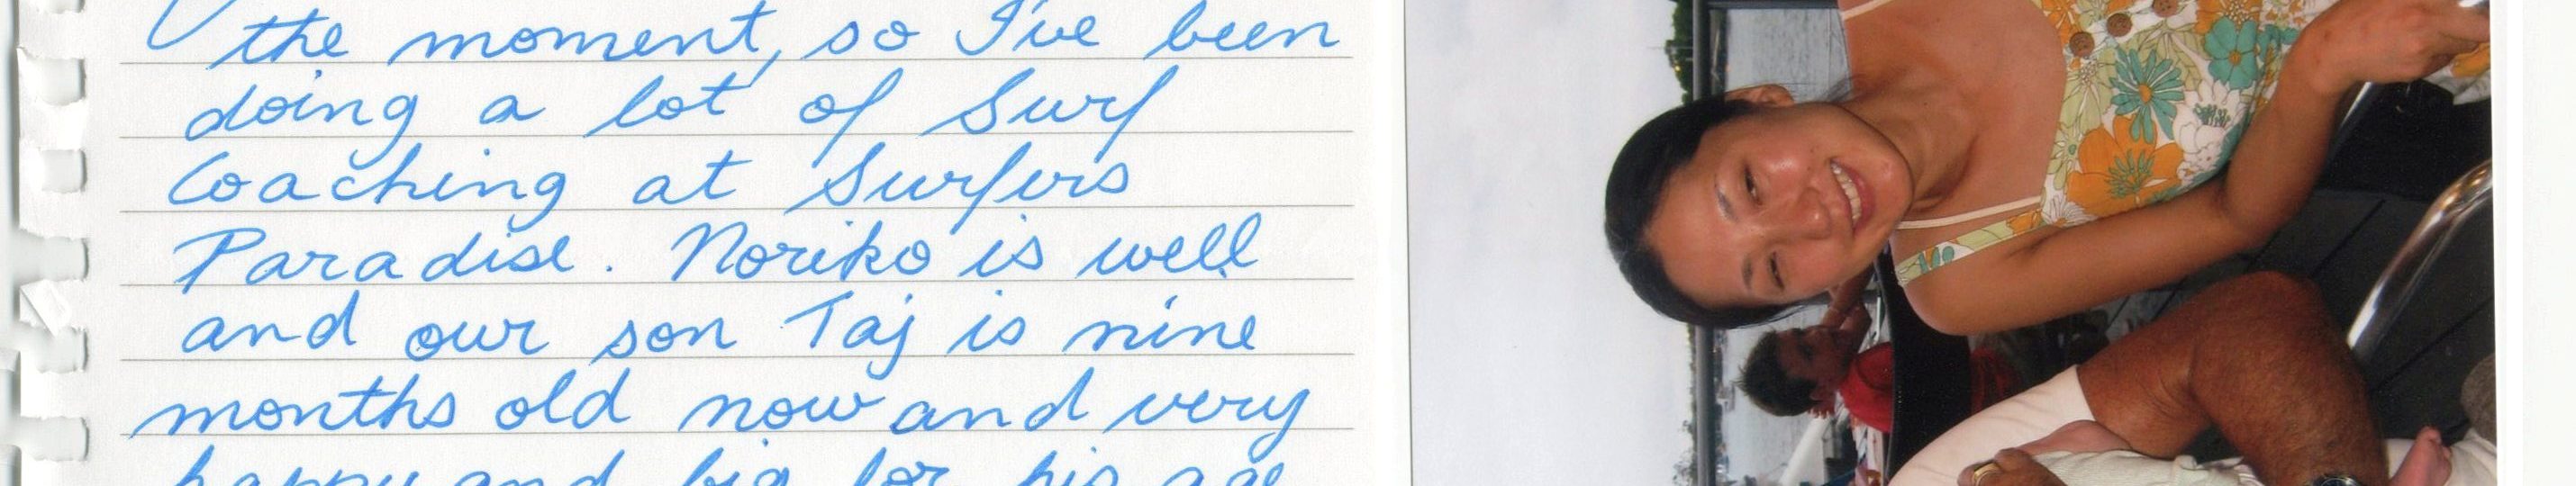 the moment, so I've been
doing a lot of Surf
Coaching at Surfers
Paradise. Noriko is well
and our son Taj is nine
months old now and very
happy and big for his age